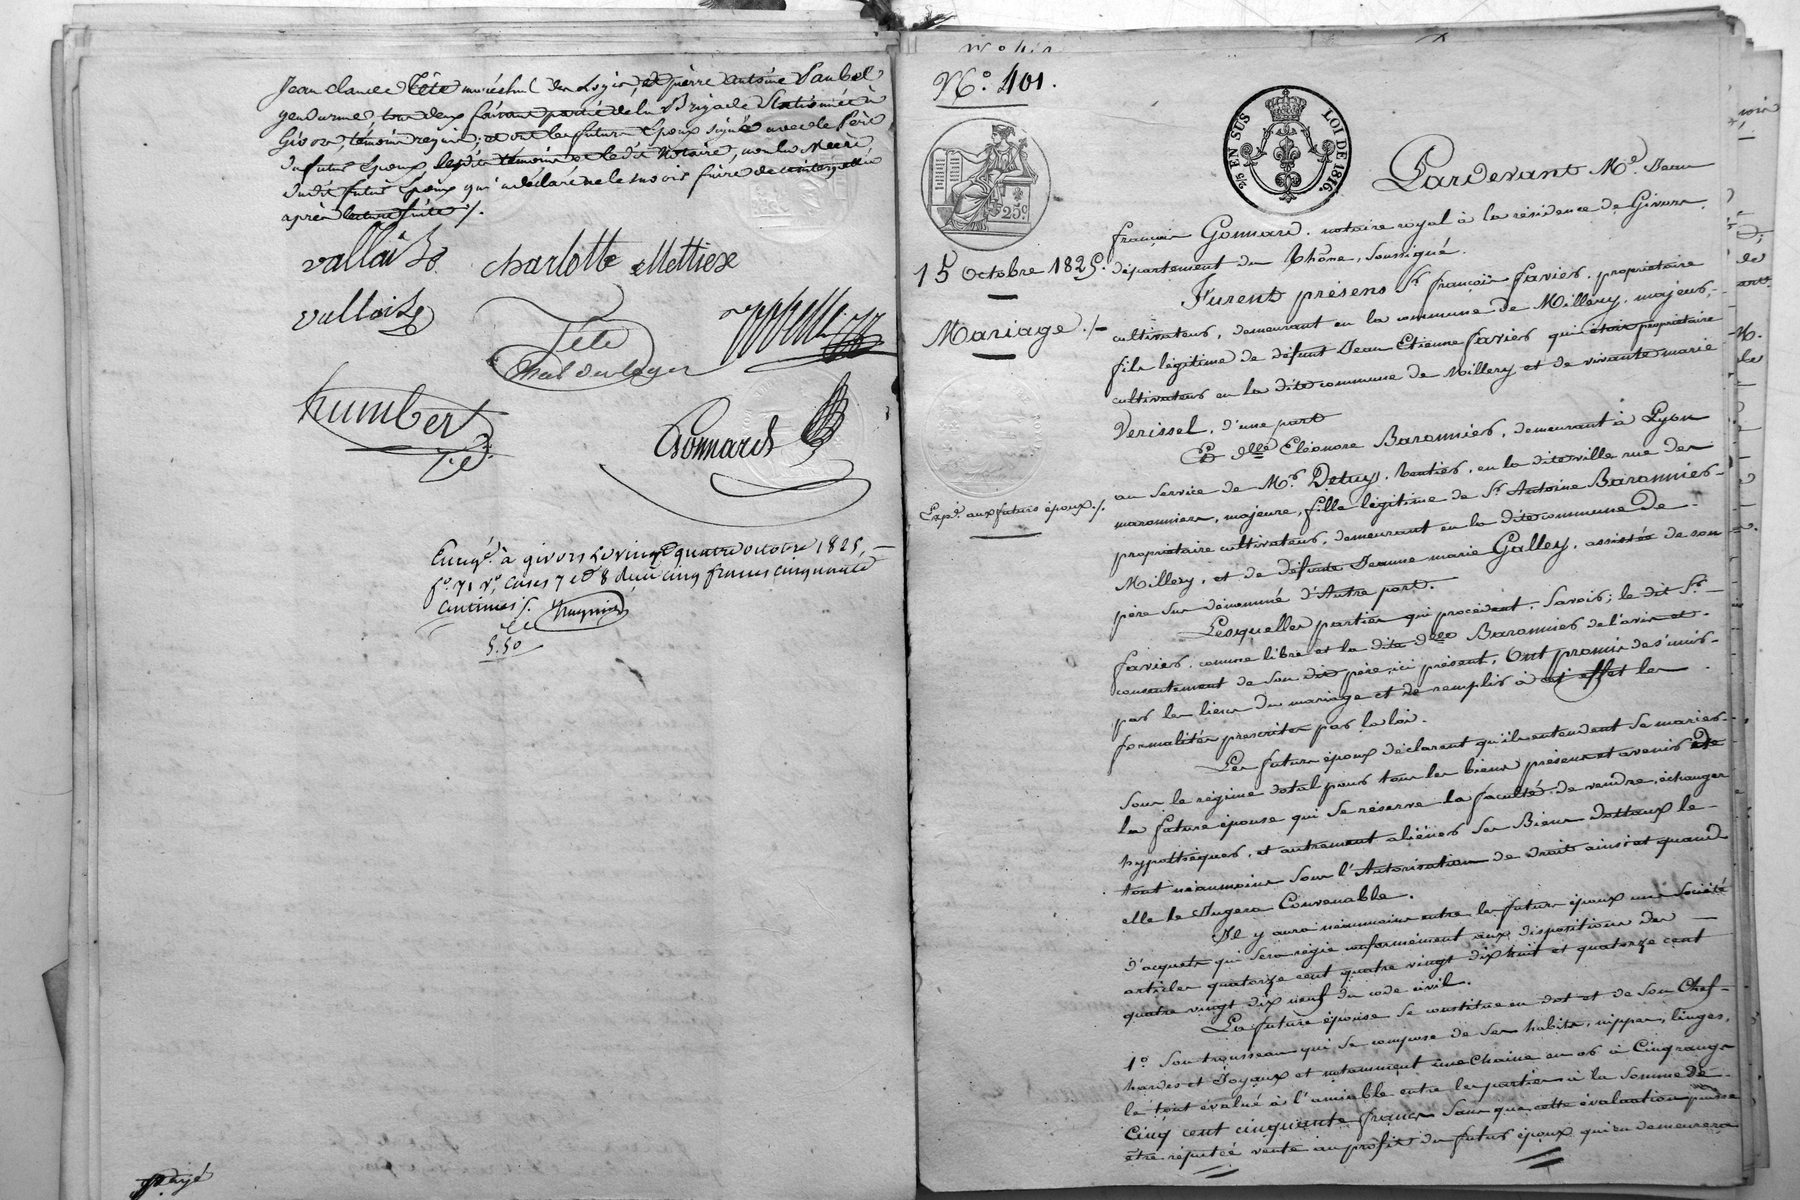 Jean Claude Tête maréchal des Logis, et pierre antoine Paubel
gendarme, tous deux faisant partie de la Brigade Stationnée à
Givors, témoins requis; et ont les futurs Epoux signé avec le Père
du futur Epoux, lesdits témoins et ledit Notaire, non la Mère
dudit futur Epoux qui a déclaré ne le savoir faire de ce interpellée
après lecture faite ./.
Vallois
Charlotte Mettiex
Vallois
Tête
Mal des logis
humbert
Gonnard
Enregé à givors le vingt quatre octobre 1825,
fo 71 vo, cases 7 et 8 Reçu cinq francs cinquante
centimes ./.
5.50
payé
No. 401.
2/5 EN SUS LOI DE 1816.
25c.
15 Octobre 1825.
Mariage ./-
Expé. aux futurs époux ./.
Pardevant Me. Jean
françois Gonnard, notaire royal à la résidence de Givors,
département du Rhône, soussigné.
Furent présens Sr. françois favier, propriétaire
cultivateur, demeurant en la commune de Millery, majeur,
fils légitime de défunt Jean Etienne favier qui étoit propriétaire
cultivateur en la dite commune de Millery et de vivante marie
Verissel, d'une part
Et dlle. Eléonore Baronnier, demeurant à Lyon
au service de Mr. Detuy, Rentier, en la dite ville rue des
maronniers, majeure, fille légitime de Sr. Antoine Baronnier
propriétaire cultivateur, demeurant en la dite commune de
Millery, et de défunte Jeanne marie Galley, assistée de son
père sus dénommé d'Autre part.
Lesquelles parties qui procèdent, Savoir; le dit Sr.
favier, comme libre et la dite dlle Baronnier de l'avis et
consentement de son dit père, ici présent, Ont promis de s'unir
par les liens du mariage et de remplir à cet effet les
formalités prescrites par la loi.
Les futurs époux déclarent qu'ils entendent se marier
sous le régime dotal pour tous les biens présens et avenir de
la future épouse qui se réserve la faculté de vendre, échanger
hypothéquer, et autrement aliéner ses Biens dottaux le
tout néanmoins sous l'Autorisation de droit ainsi et quand
elle le Jugera Convenable.
Il y aura néanmoins entre les futurs époux une société
d'acquets qui sera régie conformément aux dispositions des
articles quatorze cent quatre vingt dix huit et quatorze cent
quatre vingt dix neuf du code civil.
La future épouse se constitue en dot et de son Chef
1o. Son trousseau qui se compose de ses habits, nippes, linges,
hardes et Joyaux et notamment une Chaine en or à Cinq rangs
le tout évalué à l'amiable entre les parties à la somme de
Cinq cent cinquante francs sans que cette évaluation puisse
être réputée vente au profit du futur époux qui en demeurera